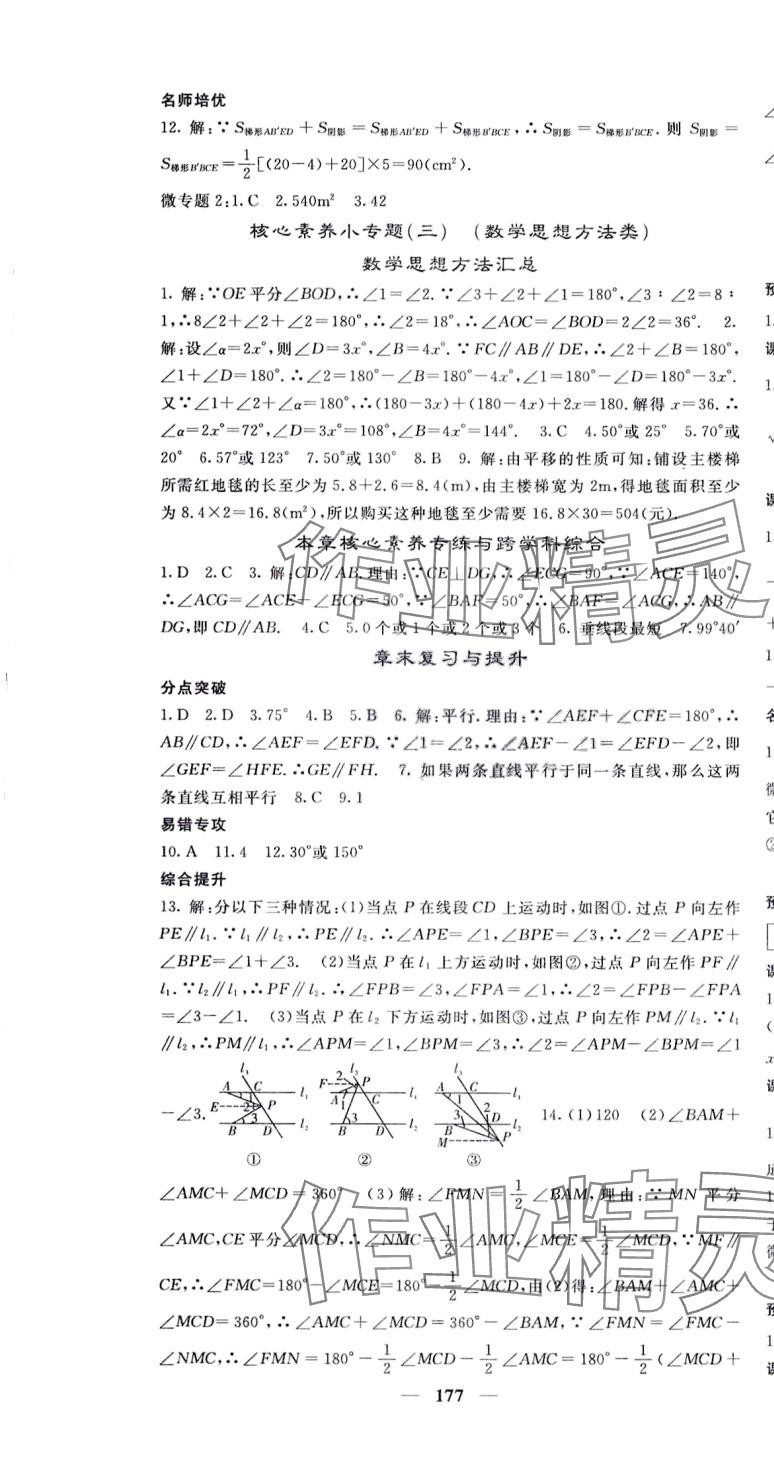 名师培优
12. 解:∵S梯形AB′ED+S阴影=S梯形AB′ED+S梯形B′BCE,∴S阴影=S梯形B′BCE.则 S阴影=
S梯形B′BCE=1/2[(20-4)+20]×5=90(cm²).
微专题 2:1.C 2.540m² 3.42
核心素养小专题(三) (数学思想方法类)
数学思想方法汇总
1. 解:∵OE平分∠BOD,∴∠1=∠2.∵∠3+∠2+∠1=180°,∠3∶∠2=8∶
1,∴8∠2+∠2+∠2=180°,∴∠2=18°,∴∠AOC=∠BOD=2∠2=36°. 2.
解:设∠α=2x°,则∠D=3x°,∠B=4x°.∵FC∥AB∥DE,∴∠2+∠B=180°,
∠1+∠D=180°.∴∠2=180°-∠B=180°-4x°,∠1=180°-∠D=180°-3x°.
又∵∠1+∠2+∠α=180°,∴(180-3x)+(180-4x)+2x=180.解得x=36.∴
∠α=2x°=72°,∠D=3x°=108°,∠B=4x°=144°. 3.C 4.50°或 25° 5.70°或
20° 6.57°或 123° 7.50°或 130° 8.B 9. 解:由平移的性质可知:铺设主楼梯
所需红地毯的长至少为 5.8+2.6=8.4(m),由主楼梯宽为 2m,得地毯面积至少
为 8.4×2=16.8(m²),所以购买这种地毯至少需要 16.8×30=504(元).
本章核心素养专练与跨学科综合
1.D 2.C 3. 解:CD∥AB.理由:∵CE⊥DG,∴∠ECG=90°,∵∠ACE=140°,
∴∠ACG=∠ACE-∠ECG=50°,∵∠BAF=50°,∴∠BAF=∠ACG,∴AB∥
DG,即CD∥AB. 4.C 5.0个或1个或2个或3个 6. 垂线段最短 7.99°40′
章末复习与提升
分点突破
1.D 2.D 3.75° 4.B 5.B 6. 解:平行.理由:∵∠AEF+∠CFE=180°,∴
AB∥CD,∴∠AEF=∠EFD.∵∠1=∠2,∴∠AEF-∠1=∠EFD-∠2,即
∠GEF=∠HFE.∴GE∥FH. 7. 如果两条直线平行于同一条直线,那么这两
条直线互相平行 8.C 9.1
易错专攻
10.A 11.4 12.30°或150°
综合提升
13. 解:分以下三种情况:(1)当点 P 在线段 CD 上运动时,如图①.过点 P 向左作
PE∥l₁.∵l₁∥l₂,∴PE∥l₂.∴∠APE=∠1,∠BPE=∠3,∴∠2=∠APE+
∠BPE=∠1+∠3. (2)当点 P 在 l₁ 上方运动时,如图②,过点 P 向左作 PF∥
l₁.∵l₂∥l₁,∴PF∥l₂.∴∠FPB=∠3,∠FPA=∠1,∴∠2=∠FPB-∠FPA
=∠3-∠1. (3)当点 P 在 l₂ 下方运动时,如图③,过点 P 向左作 PM∥l₂.∵l₁
∥l₂,∴PM∥l₁,∴∠APM=∠1,∠BPM=∠3,∴∠2=∠APM-∠BPM=∠1
-∠3. 14.(1)120 (2)∠BAM+
① ② ③
∠AMC+∠MCD=360° (3)解:∠FMN=1/2∠BAM,理由:∵MN 平分
∠AMC,CE平分∠MCD,∴∠NMC=1/2∠AMC,∠MCE=1/2∠MCD,∵MF∥
CE,∴∠FMC=180°-∠MCE=180°-1/2∠MCD,由(2)得:∠BAM+∠AMC+
∠MCD=360°,∴∠AMC+∠MCD=360°-∠BAM,∵∠FMN=∠FMC-
∠NMC,∴∠FMN=180°-1/2∠MCD-1/2∠AMC=180°-1/2(∠MCD+
177
作业精灵
作业精灵